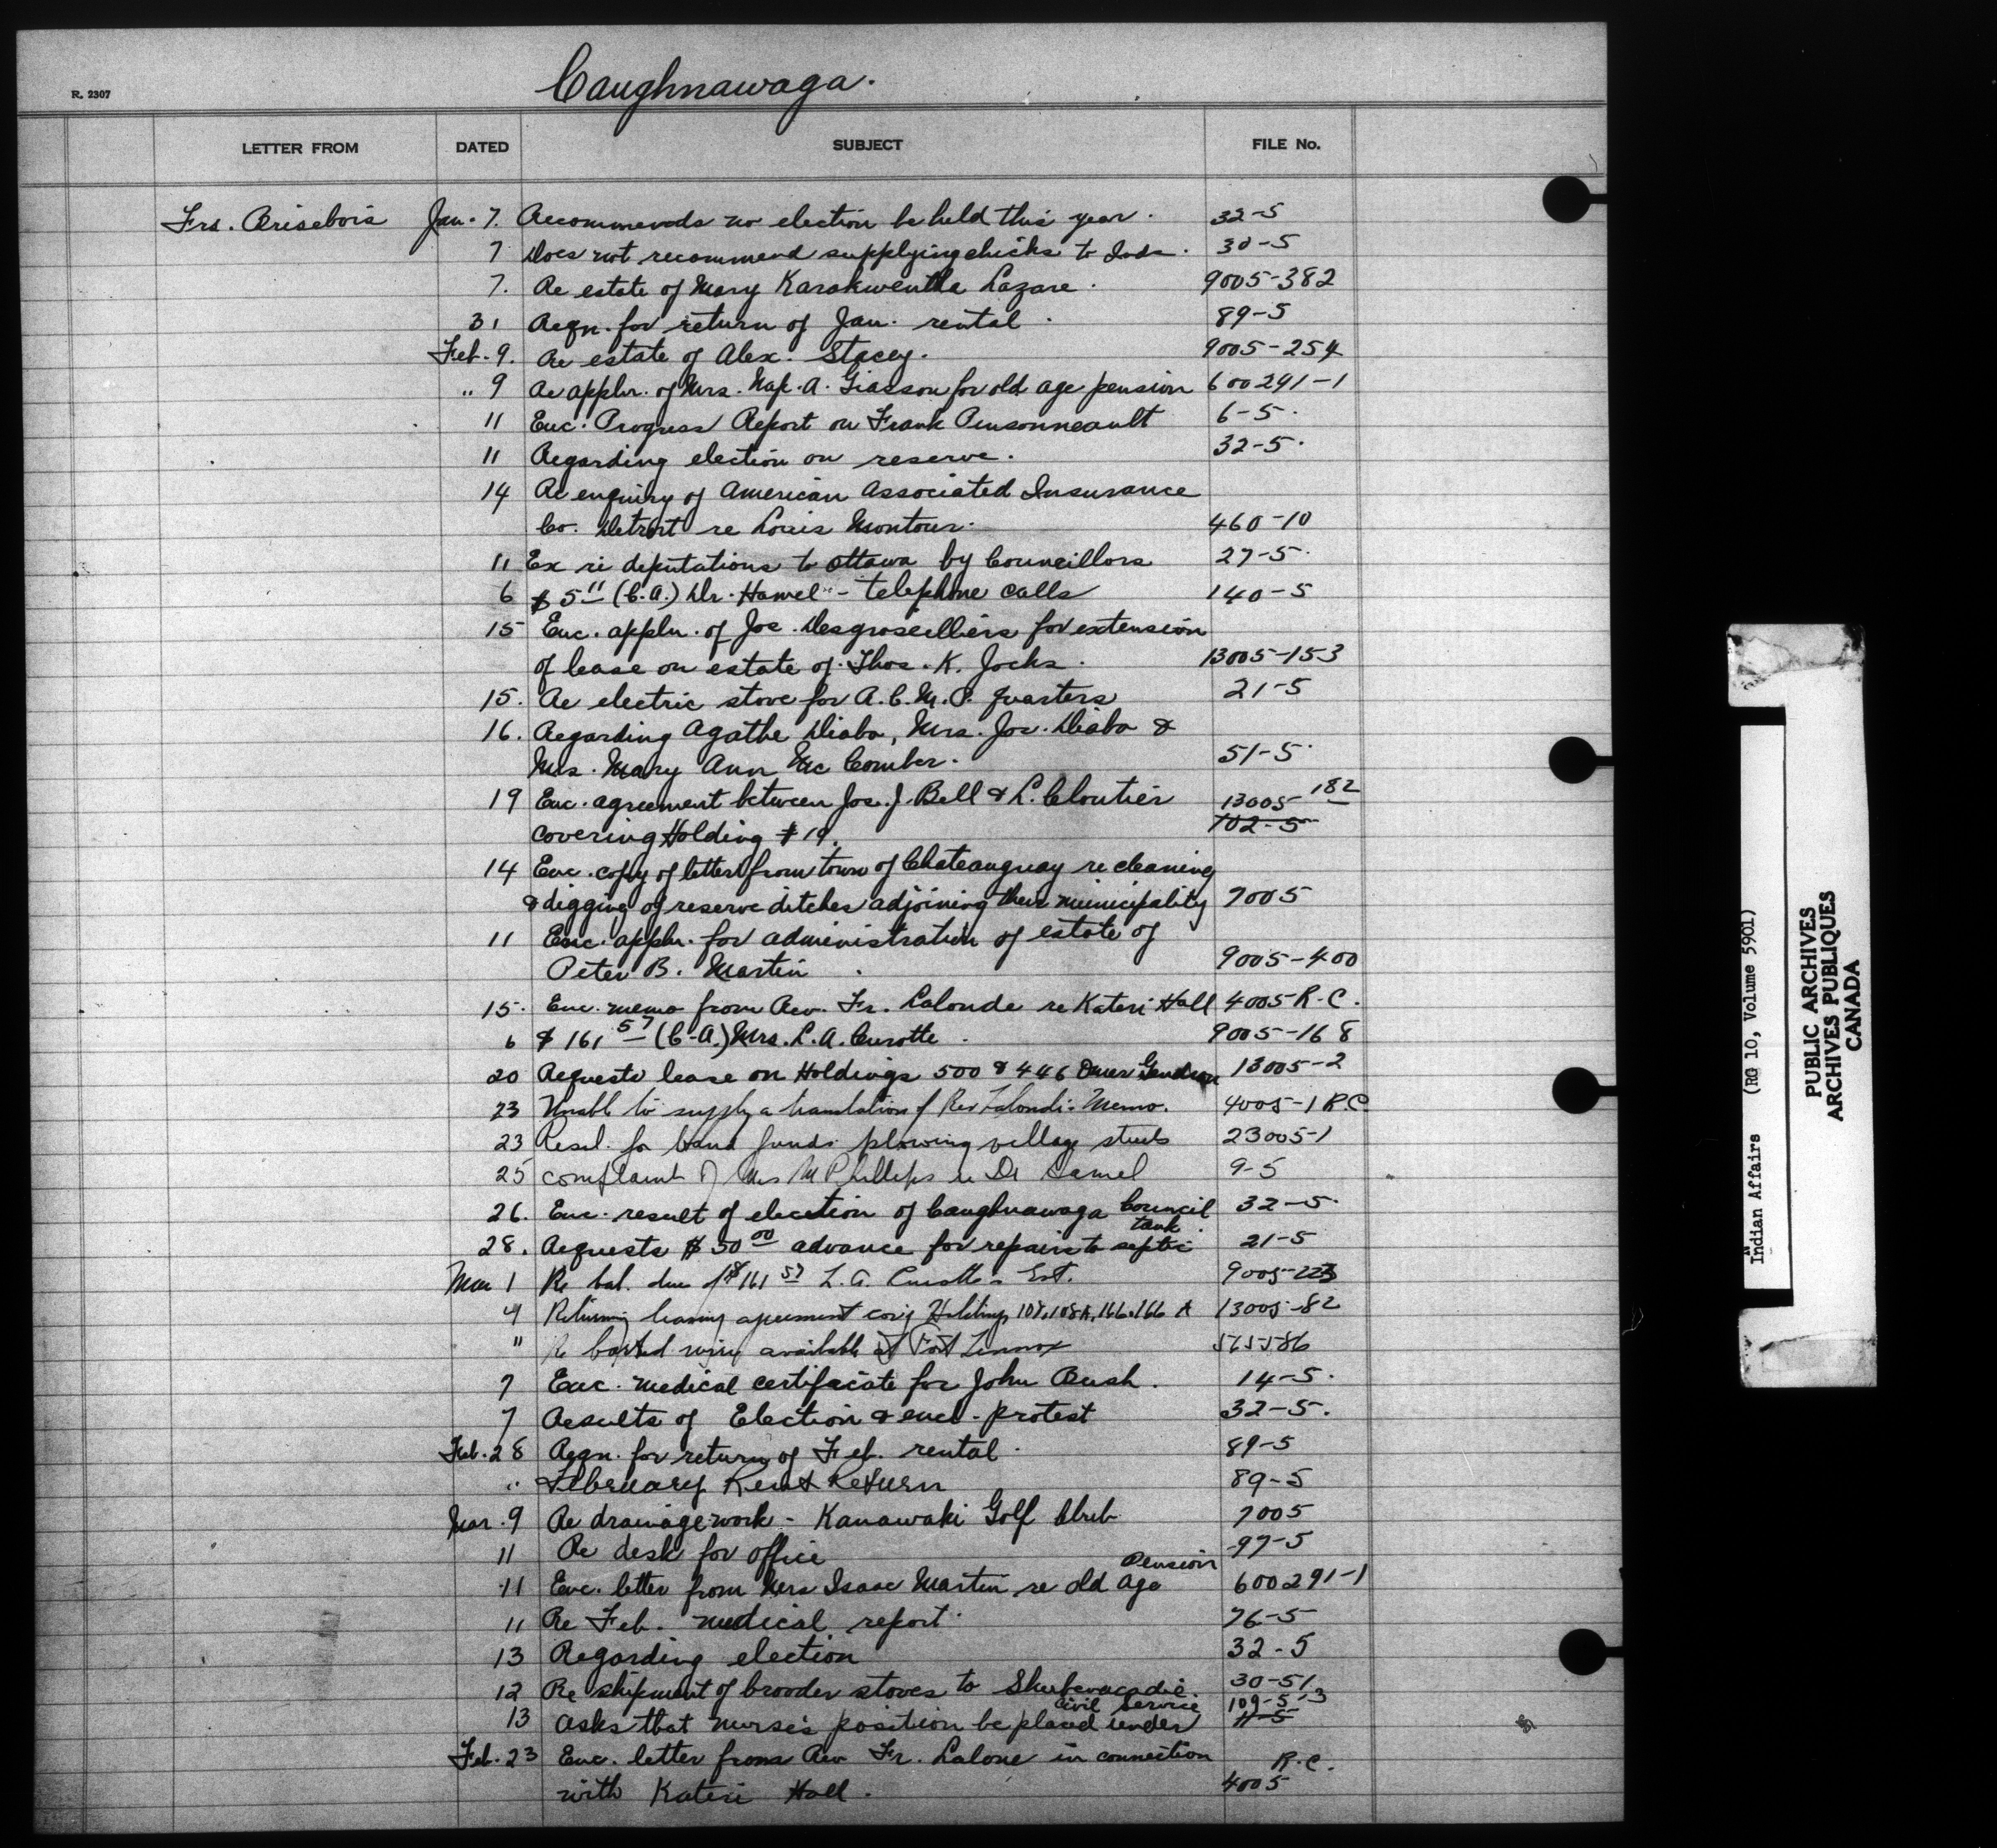 Caughnawaga.
R. 2307
LETTER FROM DATED SUBJECT FILE No.
Frs. Brisebois Jan. 7. Recommends no election be held this year. 32-5
7 Does not recommend supplying chicks to Inds. 30-5
7. Re estate of Mary Karakwentha Lazare. 9005-382
31 Reqn. for return of Jan. rental. 89-5
Feb. 9. Re estate of Alex. Stacey. 9005-254
" 9 Re appln. of Mrs. Nap. A. Giasson for old age pension 600291-1
11 Enc. Progress Report on Frank Pensonneault 6-5.
11 Regarding election on reserve. 32-5.
14 Re enquiry of American Associated Insurance
Co. Detroit re Louis Montour. 460-10
11 Ex re deputations to Ottawa by Councillors 27-5.
6 $5 11 (C.A.) Dr. Hamel - telephone calls 140-5
15 Enc. appln. of Jos. Desgroseilliers for extension
of lease on estate of Thos. K. Jocks. 13005-153
15. Re electric stove for R.C.M.P. quarters 21-5
16. Regarding Agathe Diabo, Mrs. Jos. Diabo &
Mrs. Mary Ann Mc Comber. 51-5.
19 Enc. agreement between Jos. J. Bell & L. Cloutier 13005-182
covering Holding #19. 702-5
14 Enc. copy of letter from town of Chateauguay re cleaning
& digging of reserve ditches adjoining their municipality 7005
11 Enc. appln. for administration of estate of
Peter B. Martin. 9005-400
15. Enc. memo from Rev. Fr. Lalonde re Kateri Hall 4005 R.C.
6 $161 57 (C.A.) Mrs. L.A. Curotte. 9005-168
20 Requests lease on Holdings 500 & 446 Omer Gendron 13005-2
23 Unable to supply a translation of Rev Lalonde's Memo. 4005-1 R.C
23 Resol. for band funds plowing village streets 23005-1
25 complaint of Mrs M Phillips re Dr Hamel 9-5
26. Enc. result of election of Caughnawaga Council 32-5.
tank.
28. Requests $50 00 advance for repairs to septic 21-5
Mar 1 Re bal. due of $161 57 L.A. Curotte's Est. 9005-223
4 Returning leasing agreement cov'g Holdings 108, 108A, 166 & 166 A 13005-82
" Re barbed wire available at Fort Lennox 565586
7 Enc. medical certificate for John Bush. 14-5.
7 Results of Election & encl. protest 32-5.
Feb. 28 Reqn. for return of Feb. rental. 89-5
" February Rent Return 89-5
Mar. 9 Re drainage work - Kanawaki Golf Club 7005
11 Re desk for office 97-5
Pension
11 Enc. letter from Mrs Isaac Martin re old age 600291-1
11 Re Feb. medical report. 76-5
13 Regarding election 32-5
12 Re shipment of brooder stoves to Shubenacadie. 30-51
Civil Service 109-5-3
13 Asks that nurse's position be placed under 11-5
Feb. 23 Enc. letter from Rev Fr. Lalone in connection R.C.
with Kateri Hall. 4005
Indian Affairs (RG 10, Volume 5901)
PUBLIC ARCHIVES
ARCHIVES PUBLIQUES
CANADA